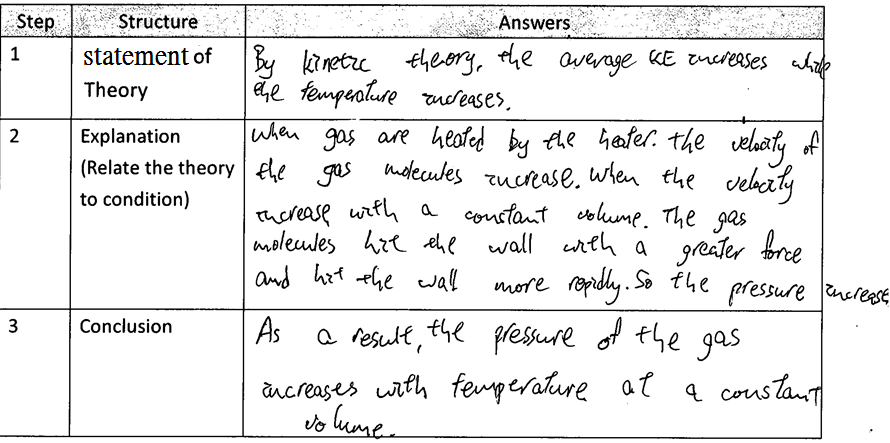 Step Structure Answers
1 statement of Theory By kinetic theory, the average KE increases while
the temperature increases.
2 Explanation (Relate the theory to condition) When gas are heated by the heater. the velocity of
the gas molecules increase. When the velocity
increase with a constant volume. The gas
molecules hit the wall with a greater force
and hit the wall more rapidly. So the pressure increase
3 Conclusion As a result, the pressure of the gas
increases with temperature at a constant
volume.